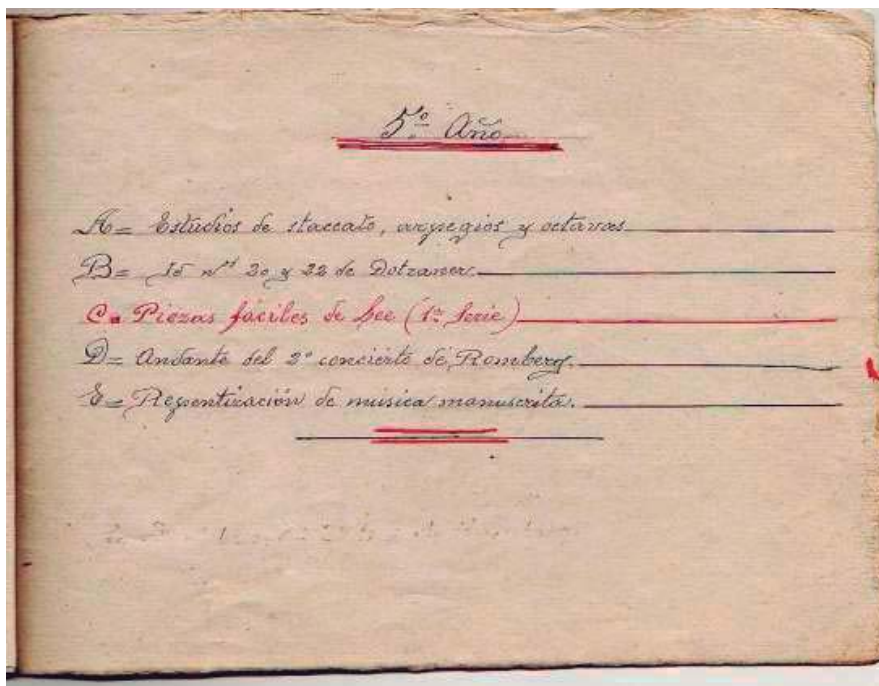 5º Año
A= Estudios de staccato, arpegios y octavas
B= Id nos 20 y 22 de Dotzauer
C= Piezas fáciles de Lee (1ª Serie)
D= Andante del 2º concierto de Romberg.
E= Repentización de música manuscrita.